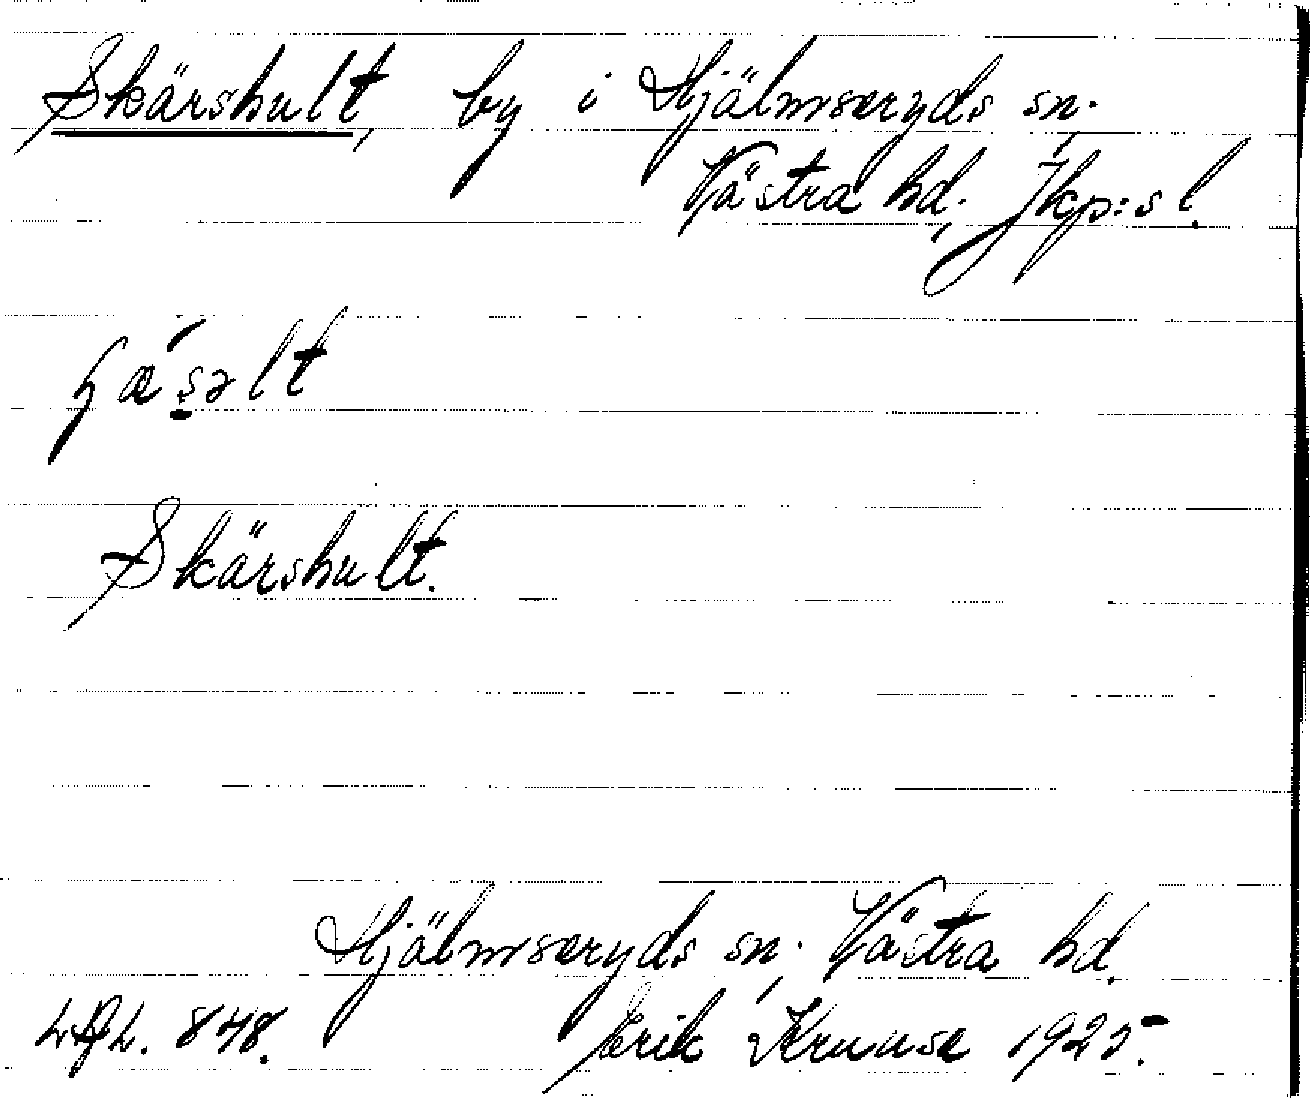 Skärshult, by i Hjälmseryds sn.
Västra hd. Jkp:s l.
Skärshult.
Hjälmseryds sn, Västra hd.
848. Erik Kruuse 1925.